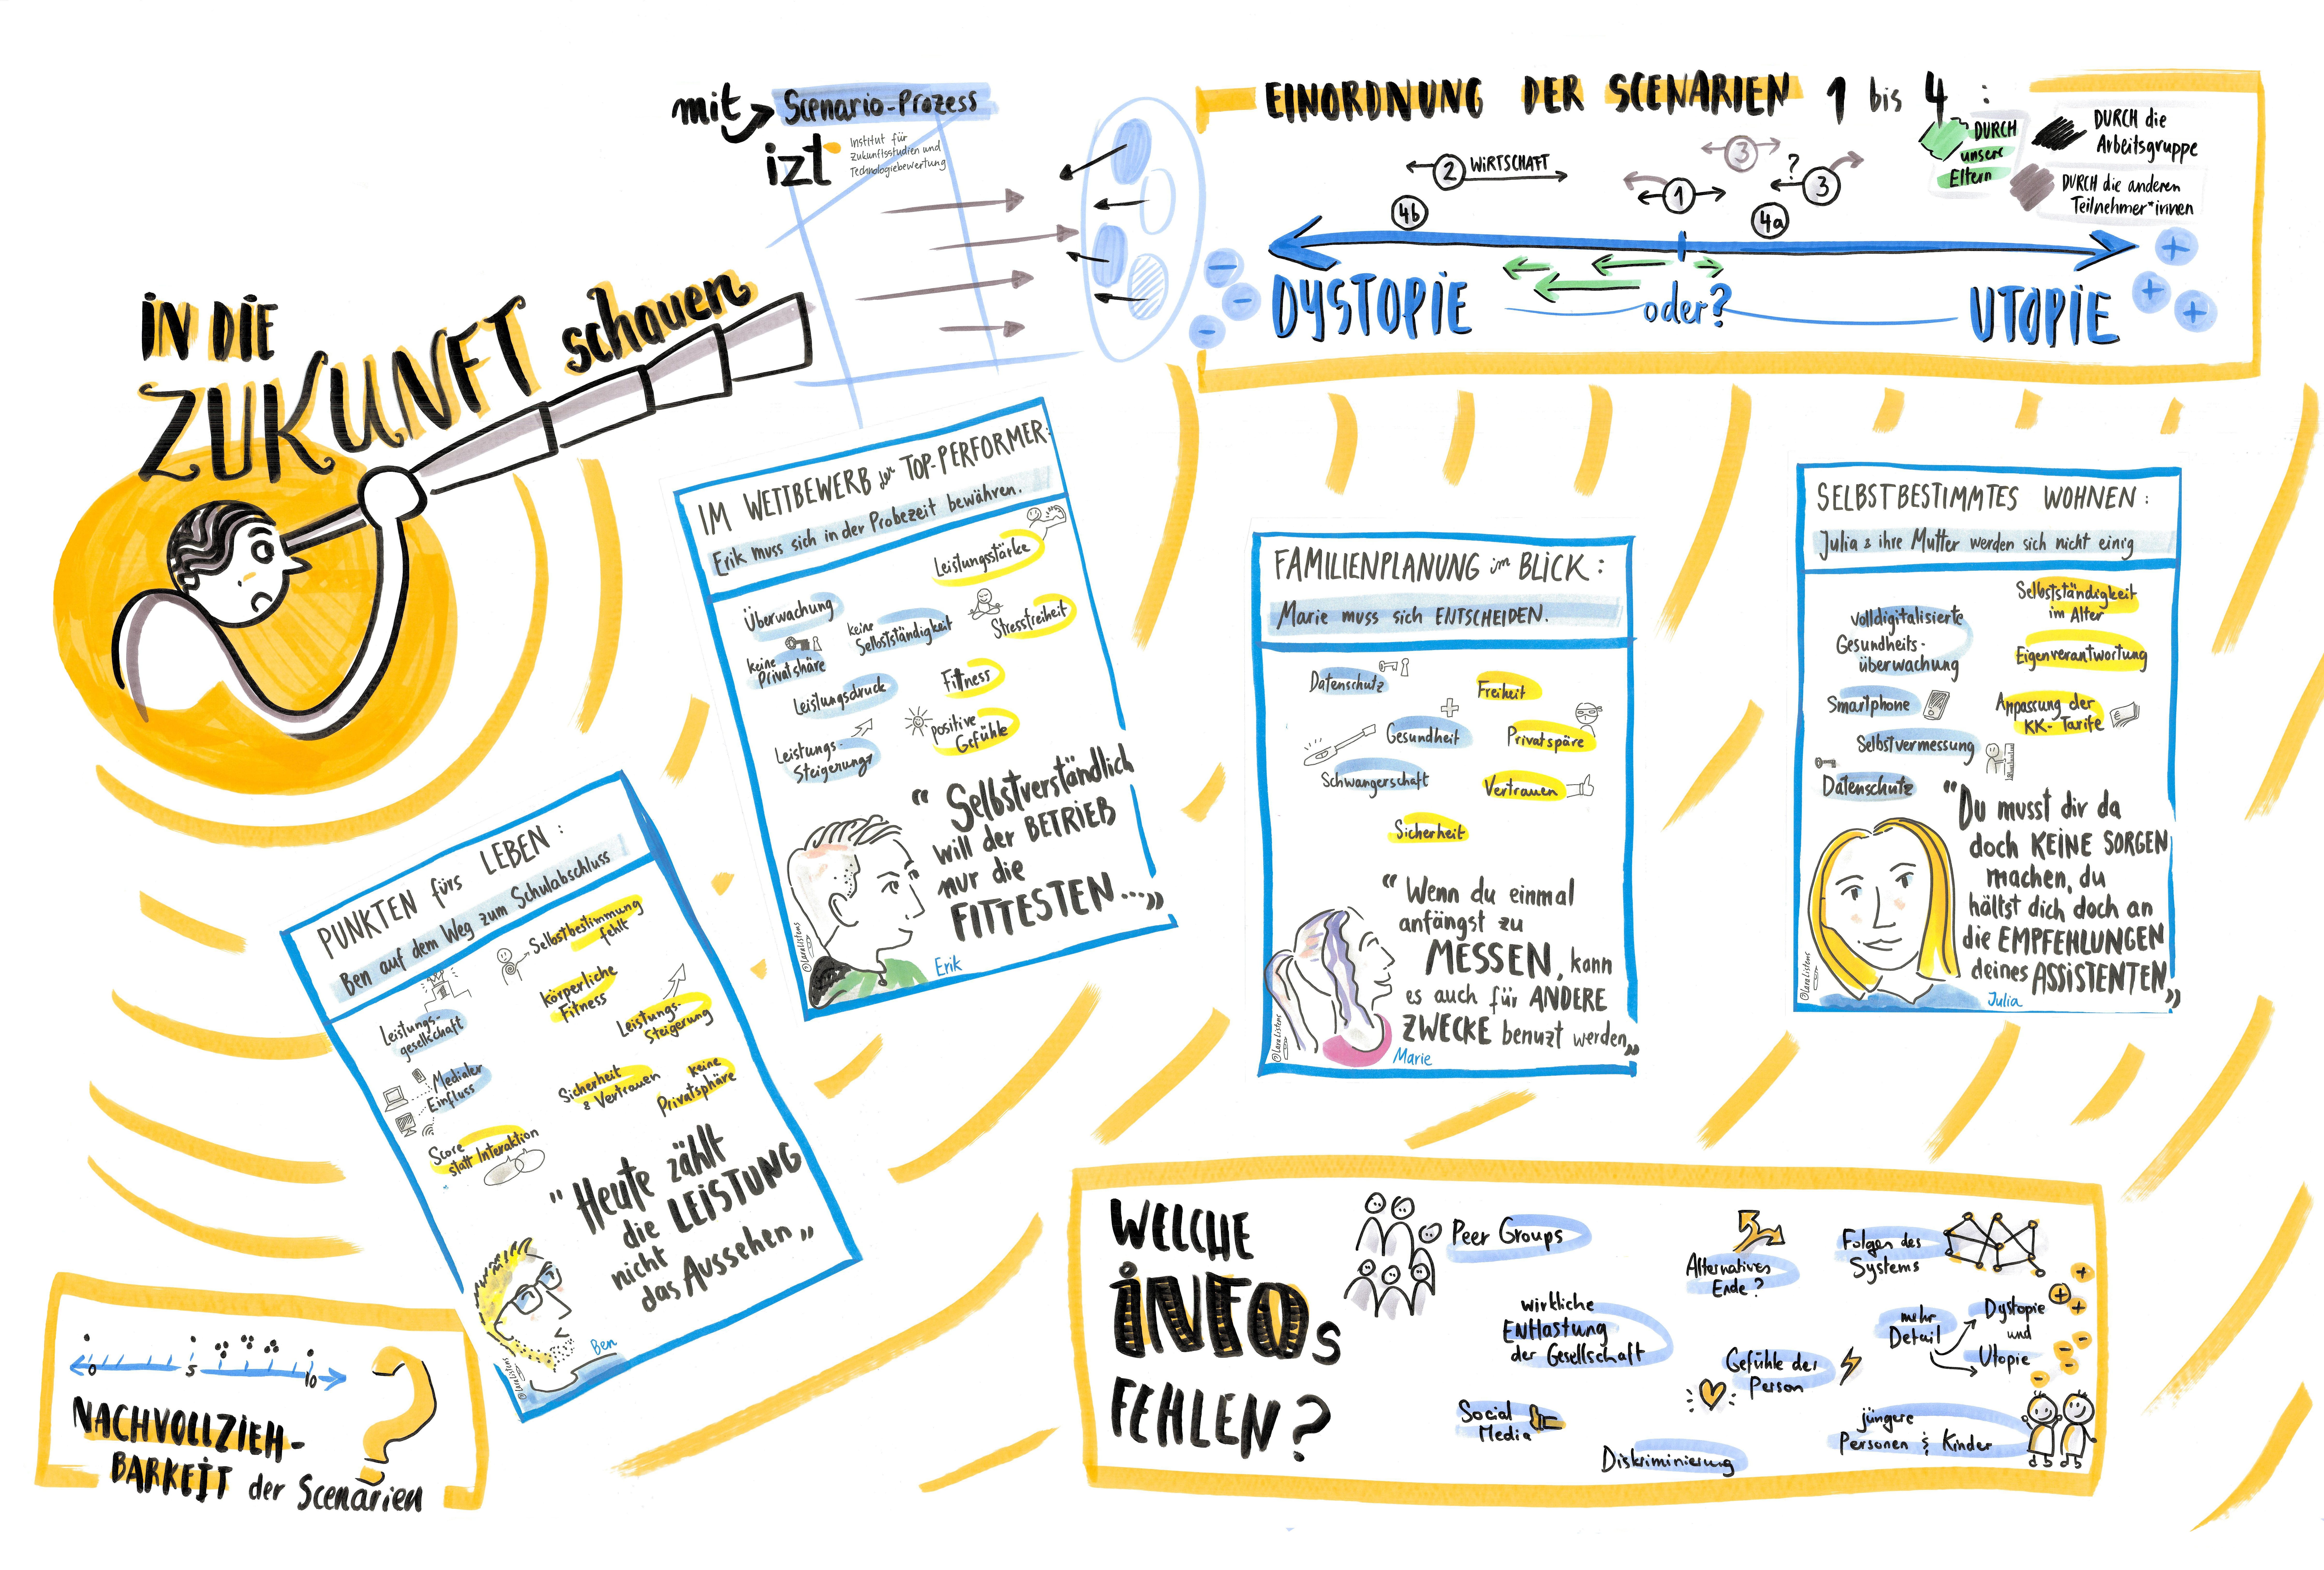 IN DIE
ZUKUNFT schauen
mit
Scenario-Prozess
izt
Institut für
Zukunftsstudien und
Technologiebewertung
EINORDNUNG DER SCENARIEN 1 bis 4 :
DURCH
unsere
Eltern
DURCH die
Arbeitsgruppe
DURCH die anderen
Teilnehmer*innen
2 WIRTSCHAFT
3
?
1
3
4b
4a
DYSTOPIE
oder?
UTOPIE
PUNKTEN fürs LEBEN :
Ben auf dem Weg zum Schulabschluss
Selbstbestimmung
fehlt
körperliche
Fitness
Leistungs-
gesellschaft
Leistungs-
Steigerung
Medialer
Einfluss
Sicherheit
& Vertrauen
keine
Privatsphäre
Score
statt Interaktion
"Heute zählt
die LEISTUNG
nicht
das Aussehen"
Ben
@LaraListens
IM WETTBEWERB der TOP-PERFORMER:
Erik muss sich in der Probezeit bewähren.
Leistungsstärke
Überwachung
keine
Selbstständigkeit
Stressfreiheit
keine
Privatshäre
Leistungsdruck
Fitness
positive
Gefühle
Leistungs-
Steigerung
"Selbstverständlich
will der BETRIEB
nur die
FITTESTEN..."
Erik
@LaraListens
FAMILIENPLANUNG im BLICK :
Marie muss sich ENTSCHEIDEN.
Datenschutz
Freiheit
Gesundheit
Privatspäre
Schwangerschaft
Vertrauen
Sicherheit
"Wenn du einmal
anfängst zu
MESSEN, kann
es auch für ANDERE
ZWECKE benuzt werden"
Marie
@LaraListens
SELBSTBESTIMMTES WOHNEN :
Julia & ihre Mutter werden sich nicht einig
Volldigitalisierte
Gesundheits-
überwachung
Selbstständigkeit
im Alter
Eigenverantwortung
Smartphone
Anpassung der
KK-Tarife
Selbstvermessung
Datenschutz
"Du musst dir da
doch KEINE SORGEN
machen, du
hältst dich doch an
die EMPFEHLUNGEN
deines ASSISTENTEN"
Julia
@LaraListens
0 5 10
NACHVOLLZIEH-
BARKEIT der Scenarien
?
WELCHE
INFOs
FEHLEN?
Peer Groups
Alternatives
Ende?
Folgen des
Systems
wirkliche
ENtlastung
der Gesellschaft
mehr
Detail
Dystopie
und
Utopie
Gefühle der
Person
Social
Media
Diskriminierung
jüngere
Personen & Kinder